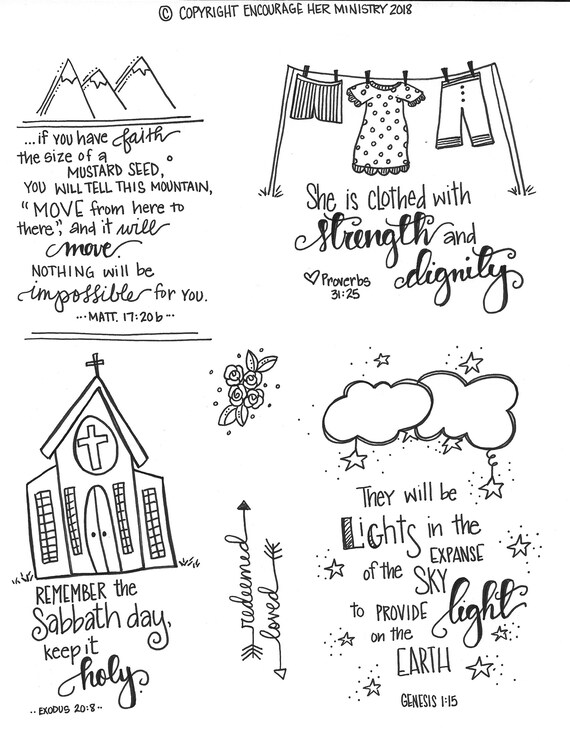 © COPYRIGHT ENCOURAGE HER MINISTRY 2018
...if you have faith
the size of a
MUSTARD SEED,
YOU WILL TELL THIS MOUNTAIN,
"MOVE from here to
there", and it will
move.
NOTHING will be
impossible for you.
...MATT. 17:20b...
She is clothed with
strength and
dignity
Proverbs
31:25
REMEMBER the
Sabbath day,
keep it
holy
..EXODUS 20:8..
redeemed
loved
They will be
LiGHTS in the
EXPANSE
of the SKY
to PROVIDE light
on the
EARTH
GENESIS 1:15